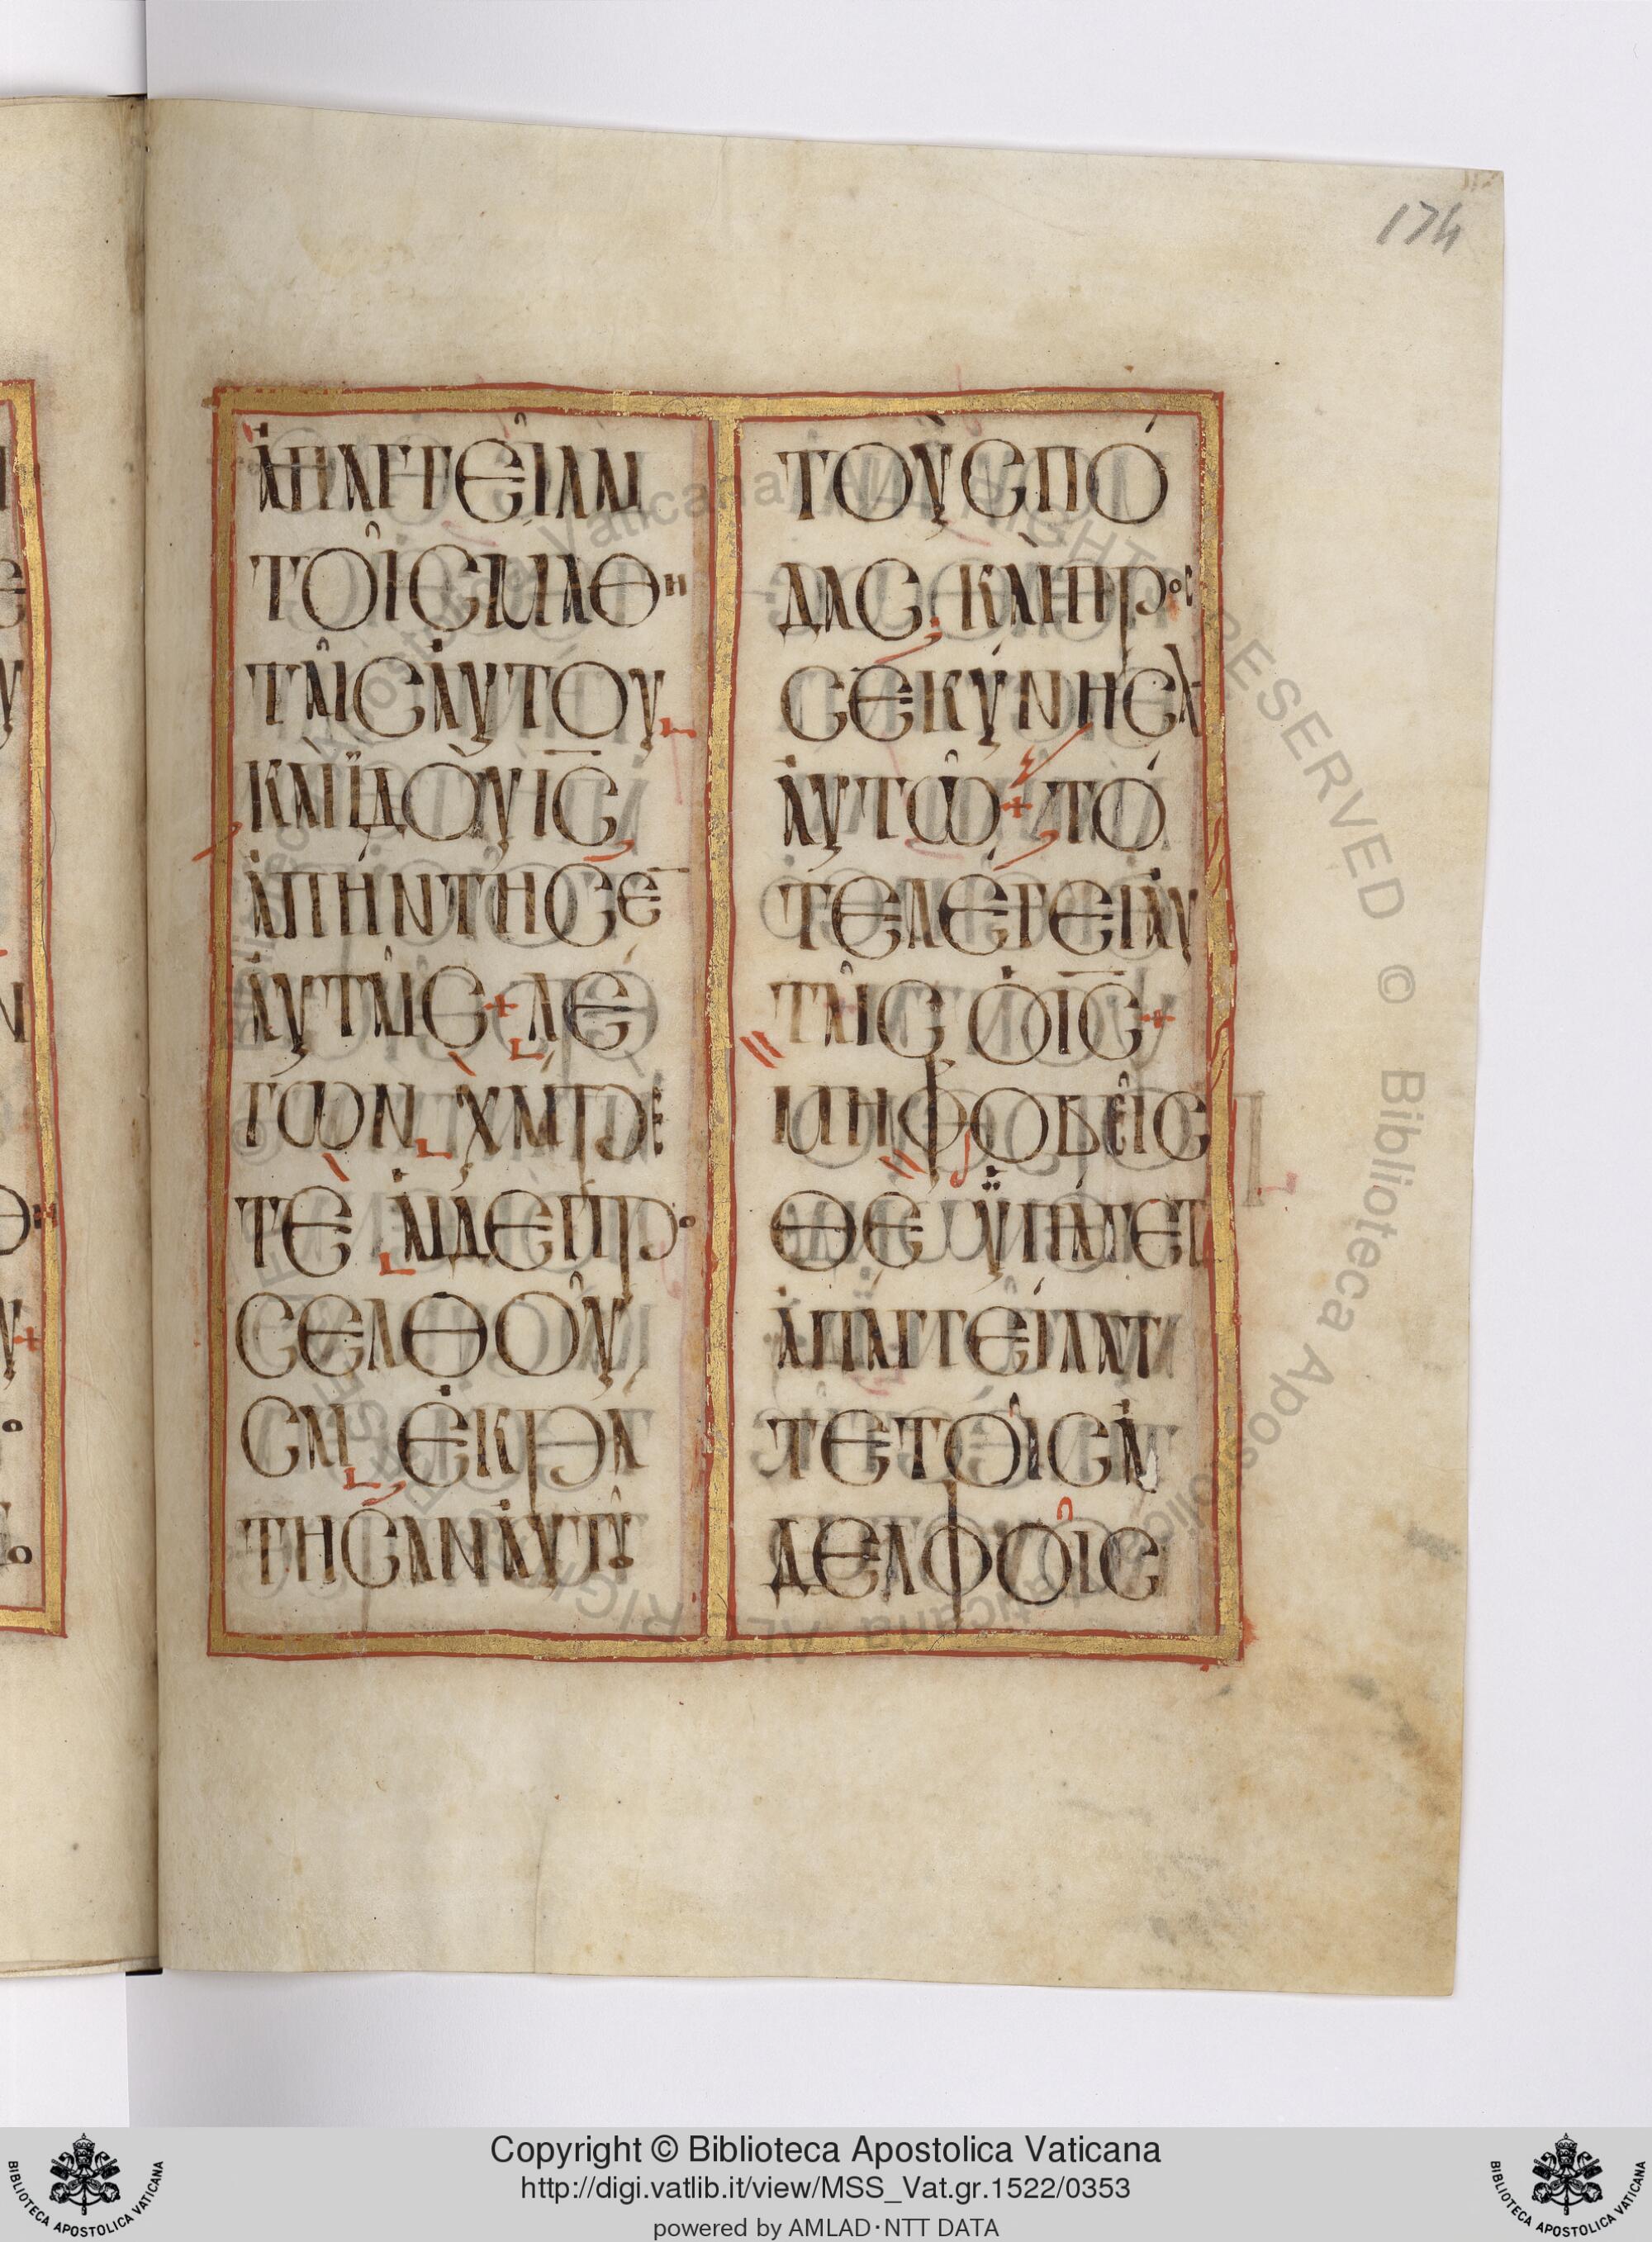 174
ἀπαγγεῖλαι
τοῖς μαθη
ταῖς αὐτοῦ
καὶ ἰδοὺ ι̅ς̅
ἀπήντησε̅
αὐταῖς + λέ
γων χαίρε
τε αἱ δὲ προ
σελθοῦ
σαι ἐκρά
τησαν αὐτοῦ
τοὺς πό
δας καὶ προσ
εκύνησαν
αὐτῷ + τό
τε λέγει αὐ
ταῖς ὁ ι̅ς̅ +
μὴ φοβεῖσ
θε ὑπάγετε
ἀπαγγείλατ
τε τοῖς ἀ
δελφοῖς
Copyright © Biblioteca Apostolica Vaticana
http://digi.vatlib.it/view/MSS_Vat.gr.1522/0353
powered by AMLAD·NTT DATA
BIBLIOTECA APOSTOLICA VATICANA
BIBLIOTECA APOSTOLICA VATICANA